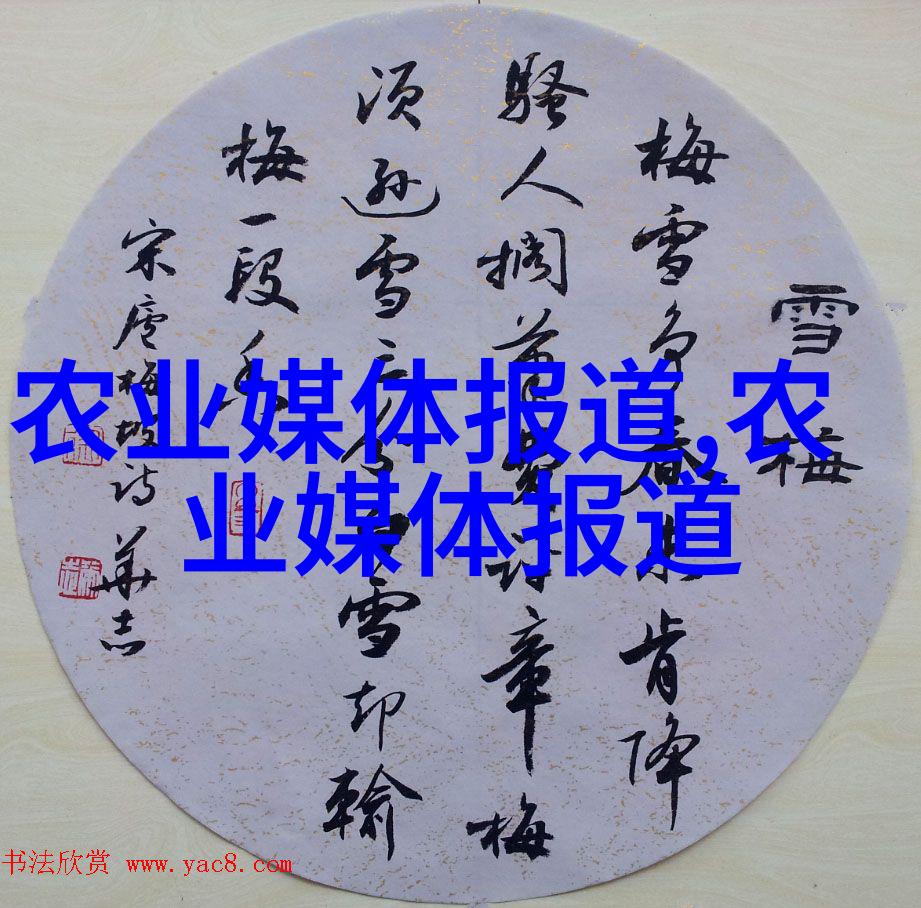 雪梅
梅雪争春未肯降
骚人搁笔费评章梅
须逊雪三分白雪却输
梅一段香
宋卢梅坡诗 華志
农业媒体报道,农
业媒体报道
书法欣赏 www.yac8.com